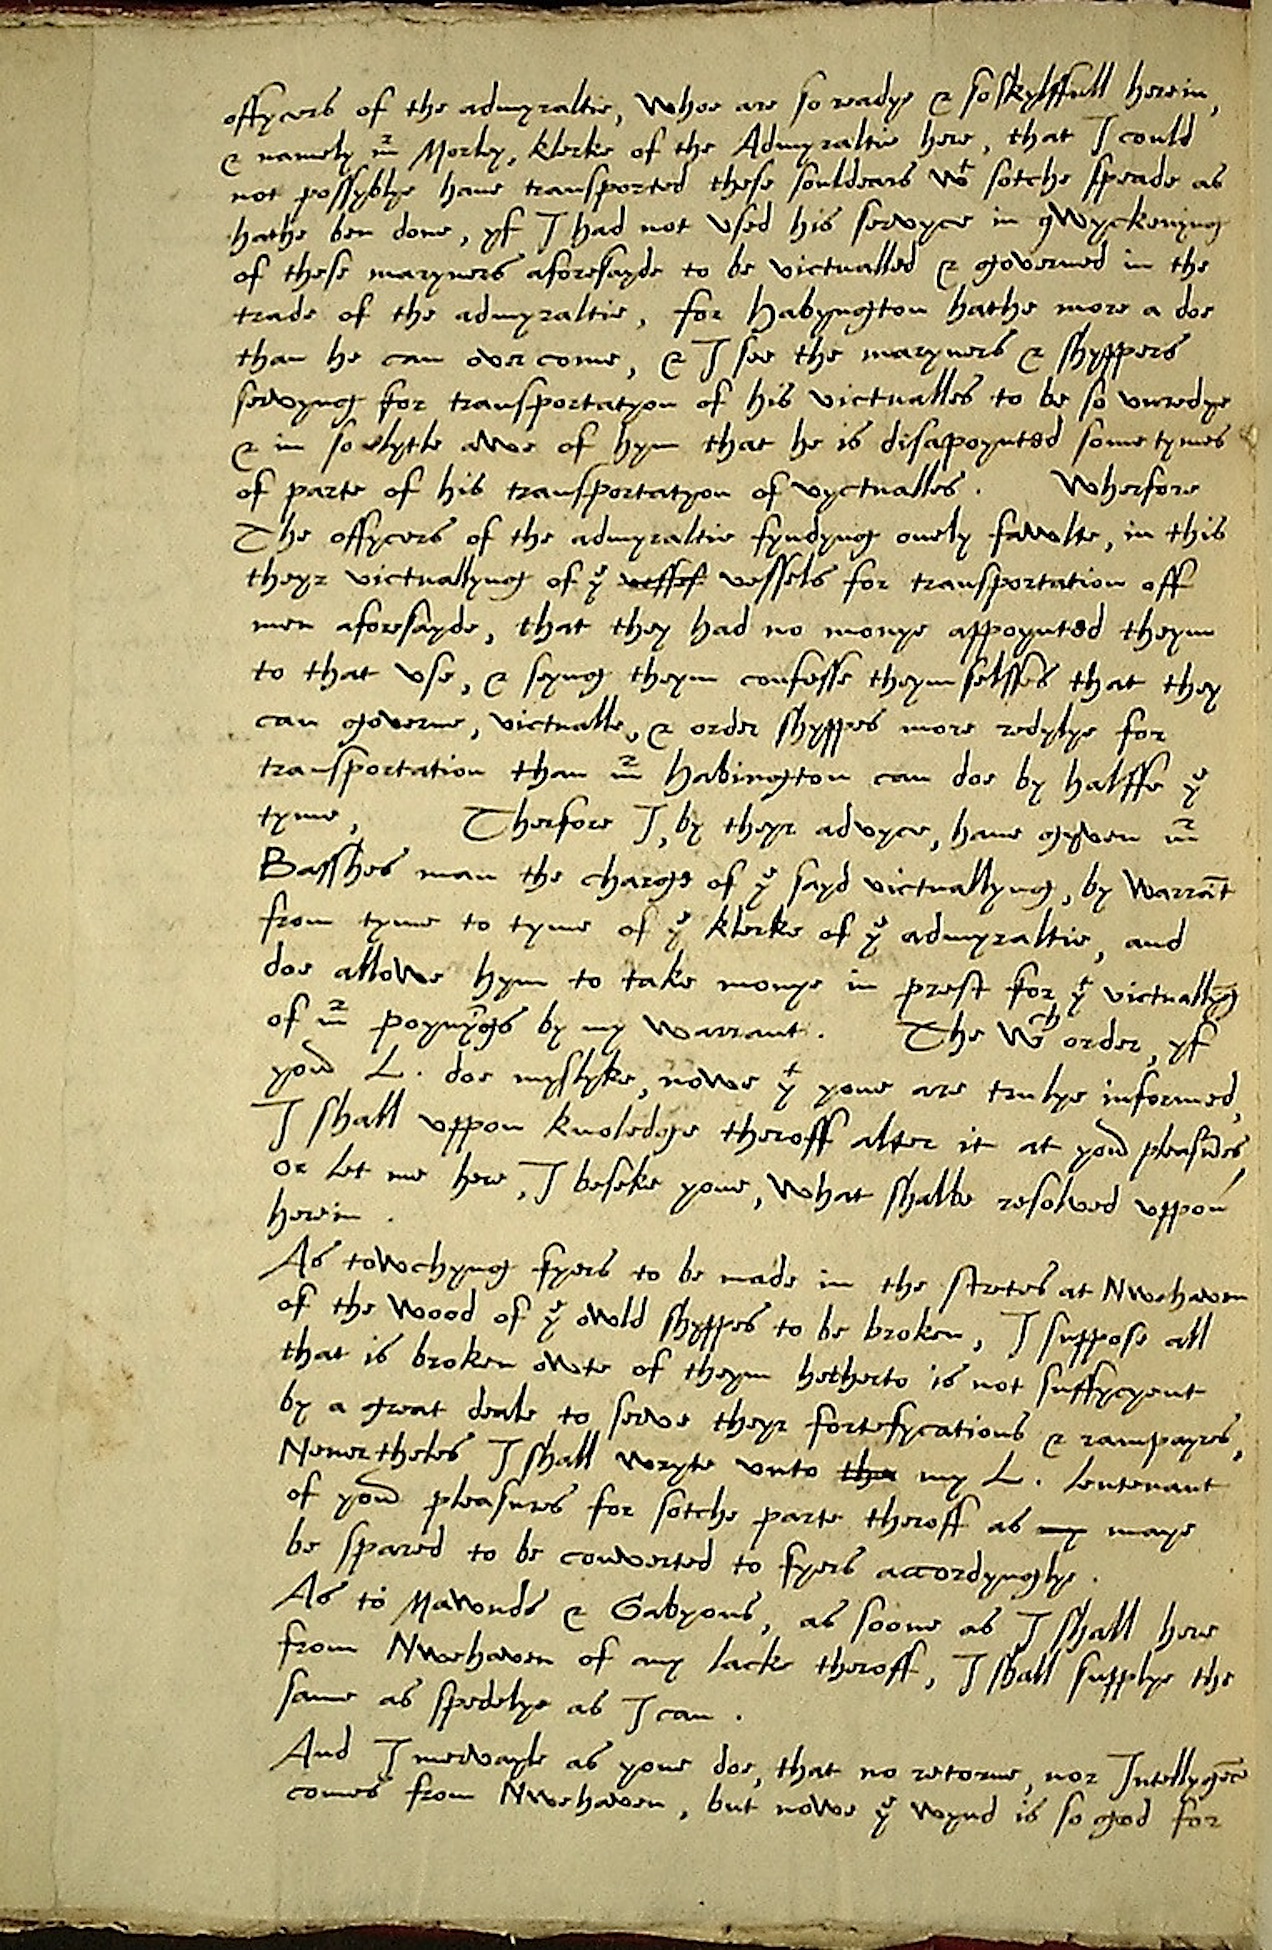 offycers of the admyraltie, whoe are so readye & so skylffull herein,
& namely mr Morley, klerke of the Admyraltie here, that I could
not possyblye haue transported these souldears wt sotche speade as
hathe ben done, yf I had not vsed his servyce in qwyckenyng
of these maryners aforesayde to be victualled & governed in the
trade of the admyraltie, for Habyngton hathe more a doe
than he can over come, & I see the maryners & shyppers
servyng for transportatyon of his victualles to be so vnredye
& in so lytle awe of hym that he is disapoynted some tymes
of parte of his transportatyon of vyctualles . Wherfore
The offycers of the admyraltie fyndyng onely fawlte, in this
theyr victuallyng of ye vessef vessels for transportation off
men aforesayde, that they had no monye appoynted theym
to that vse, & seyng theym confesse theym selffes that they
can governe, victualle, & order shyppes more redylye for
transportation than mr Habington can doe by halffe ye
tyme, Therfore I, by theyr advyce, haue gyven mr
Basshes man the charge of ye sayd victuallyng, by warrãt
from tyme to tyme of ye klerke of ye admyraltie, and
doe allowe hym to take monye in prest for ye victuallỹg
of mr poynỹgs by my warrant . The wch order, yf
your L . doe myslyke, nowe yt youe are trulye informed,
I shall vppon knoledge theroff alter it at your pleasures,
or let me here, I beseke youe, what shalbe resolved vppon
herein .
As towchyng fyers to be made in the stretes at Nwehaven
of the wood of ye owld shyppes to be broken, I suppose all
that is broken owte of theym hetherto is not suffycyent
by a great deale to serve theyr fortefycations & rampayres,
Neuertheles I shall wryte vnto the my L . Leutenant
of your pleasures for sotche parte theroff as my maye
be spared to be converted to fyers accordynglye .
As to Mawnds & Gabyons, as soone as I shall here
from Nwehaven of any lacke theroff, I shall supplye the
same as spedelye as I can .
And I mervayle as youe doe, that no retorne, nor Intellygẽce
comes from Nwehaven, but nowe ye wynd is so good for